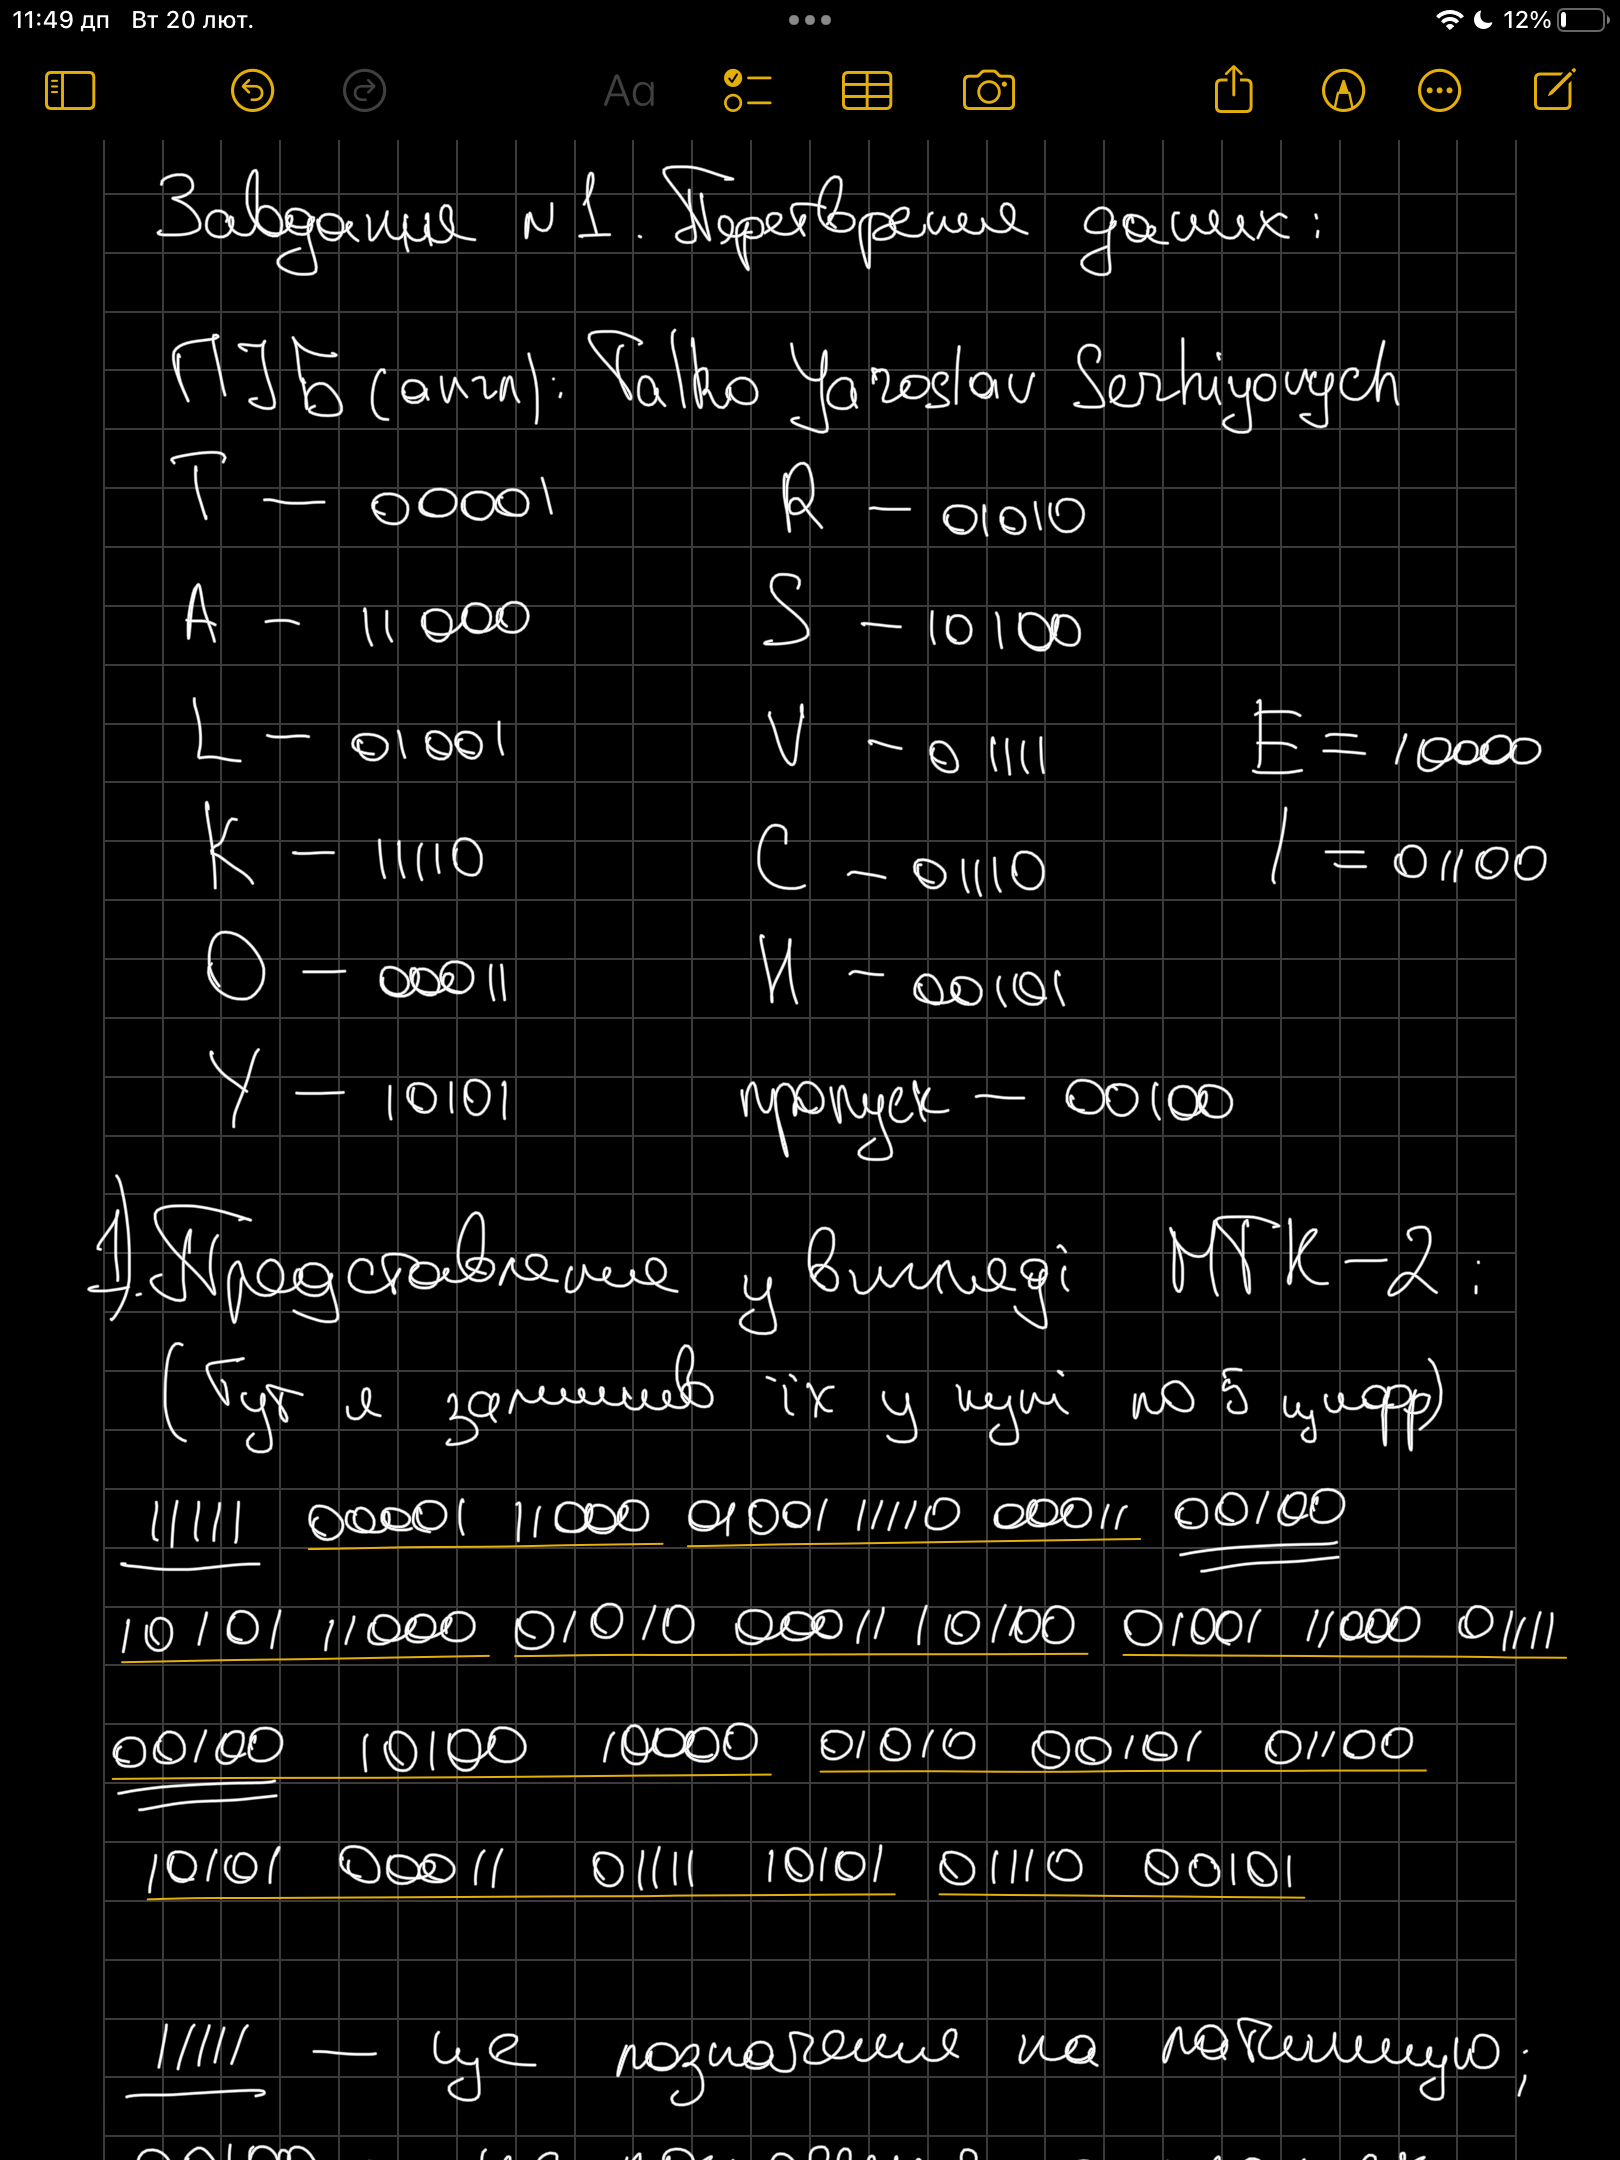 11:49 дп Вт 20 лют. 12%
Aa
Завдання №1. Перетворення даних:
ПІБ (англ): Talko Yaroslav Serhiyovych
T — 00001 R — 01010
A — 11000 S — 10100
L — 01001 V — 01111 E = 10000
K — 11110 C — 01110 I = 01100
O — 00011 H — 00101
Y — 10101 пропуск — 00100
1). Представлення у вигляді МТК-2:
(Тут я залишив їх у купі по 5 цифр)
11111 00001 11000 01001 11110 00011 00100
10101 11000 01010 00011 10100 01001 11000 01111
00100 10100 10000 01010 00101 01100
10101 00011 01111 10101 01110 00101
11111 — це позначення на латиницю;